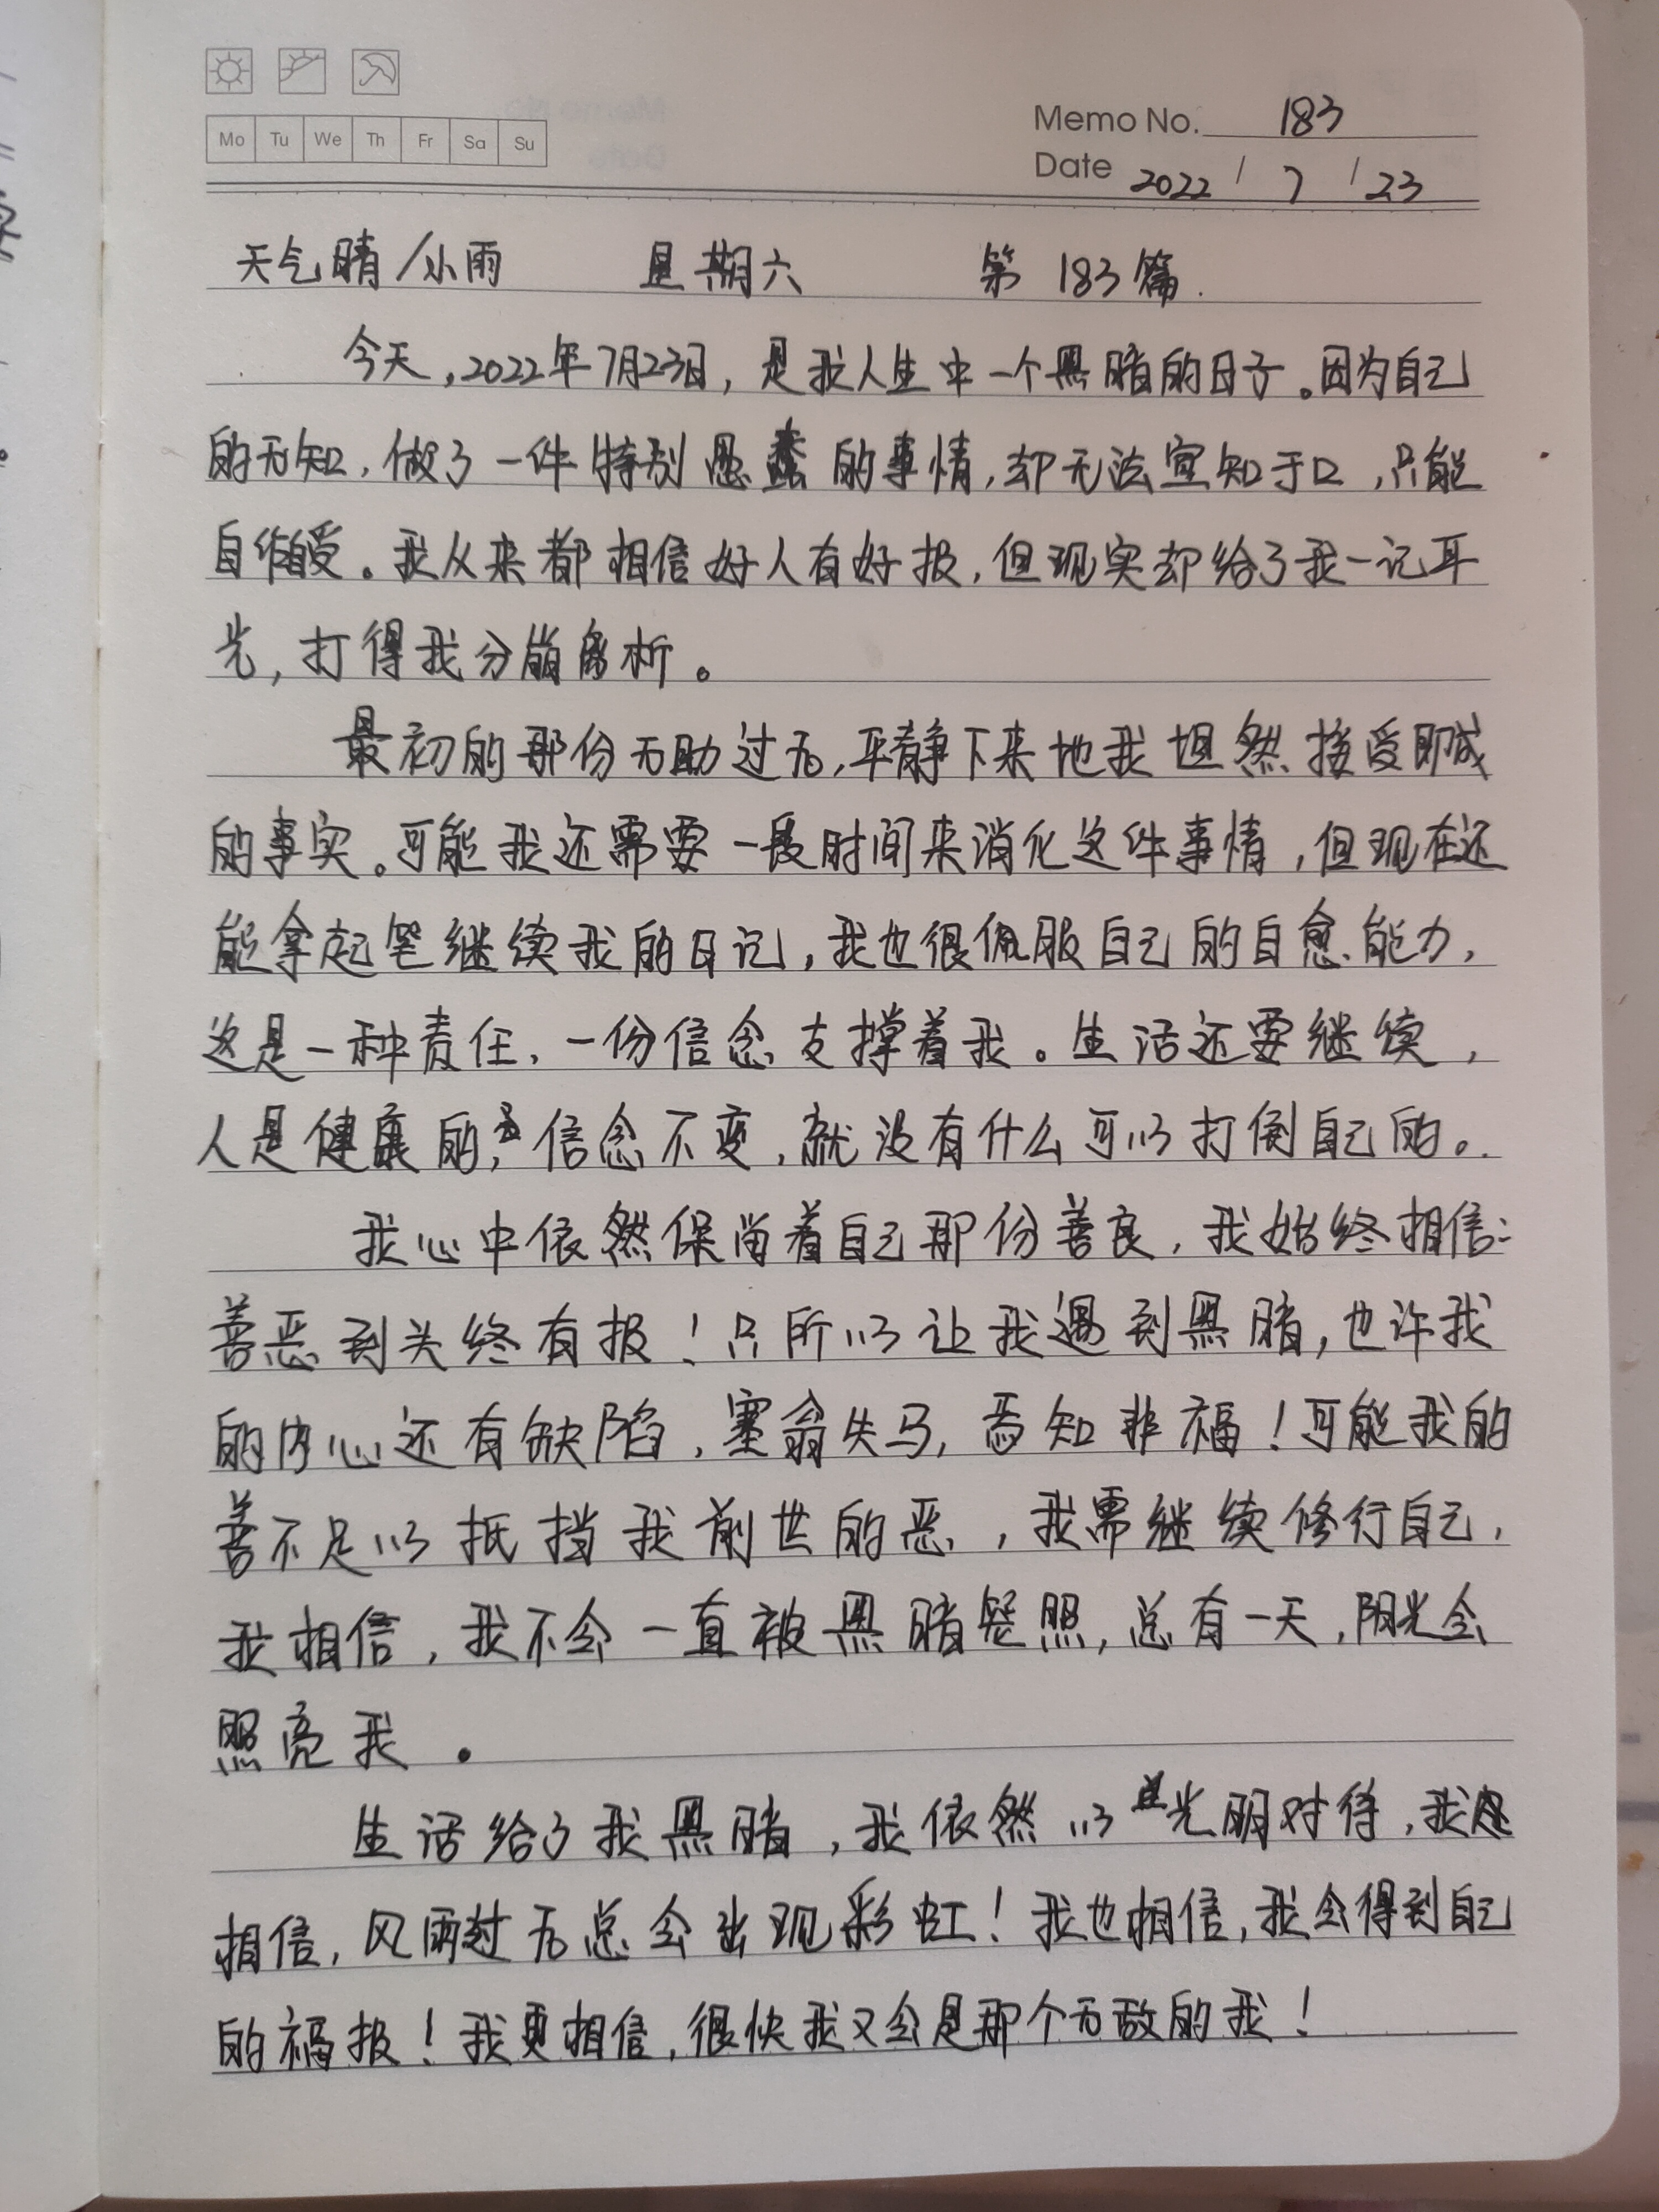 Mo Tu We Th Fr Sa Su
Memo No. 183
Date 2022 / 7 / 23
天气晴/小雨 星期六 第183篇.
今天,2022年7月23日,是我人生中一个黑暗的日子。因为自己
的无知,做了一件特别愚蠢的事情,却无法宣知于口,只能
自作自受。我从来都相信好人有好报,但现实却给了我一记耳
光,打得我分崩离析。
最初的那份无助过后,平静下来地我坦然接受即成
的事实。可能我还需要一段时间来消化这件事情,但现在还
能拿起笔继续我的日记,我也很佩服自己的自愈能力,
这是一种责任,一份信念支撑着我。生活还要继续,
人是健康的,信念不变,就没有什么可以打倒自己的。
我心中依然保留着自己那份善良,我始终相信:
善恶到头终有报!只所以让我遇到黑暗,也许我
的内心还有缺陷,塞翁失马,焉知非福!可能我的
善不足以抵挡我前世的恶,我需继续修行自己,
我相信,我不会一直被黑暗笼照,总有一天,阳光会
照亮我。
生活给了我黑暗,我依然以光明对待,我
相信,风雨过后总会出现彩虹!我也相信,我会得到自己
的福报!我更相信,很快我又会是那个无敌的我!